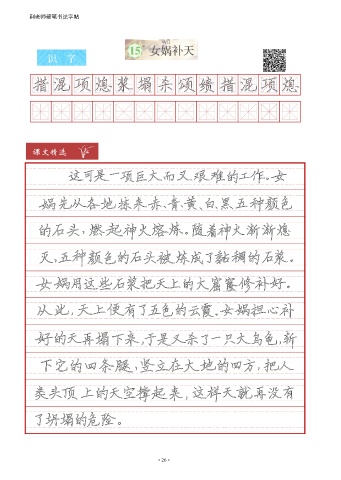 田老师硬笔书法字帖
识字
15 女娲补天
措混项熄浆塌杀颂绩措混项熄
课文精选
这可是一项巨大而又艰难的工作。女
娲先从各地拣来赤、青、黄、白、黑五种颜色
的石头，燃起神火熔炼。随着神火渐渐熄
灭，五种颜色的石头被炼成了黏稠的石浆。
女娲用这些石浆把天上的大窟窿修补好。
从此，天上便有了五色的云霞。女娲担心补
好的天再塌下来，于是又杀了一只大乌龟，斩
下它的四条腿，竖立在大地的四方，把人
类头顶上的天空撑起来，这样天就再没有
了坍塌的危险。
·26·